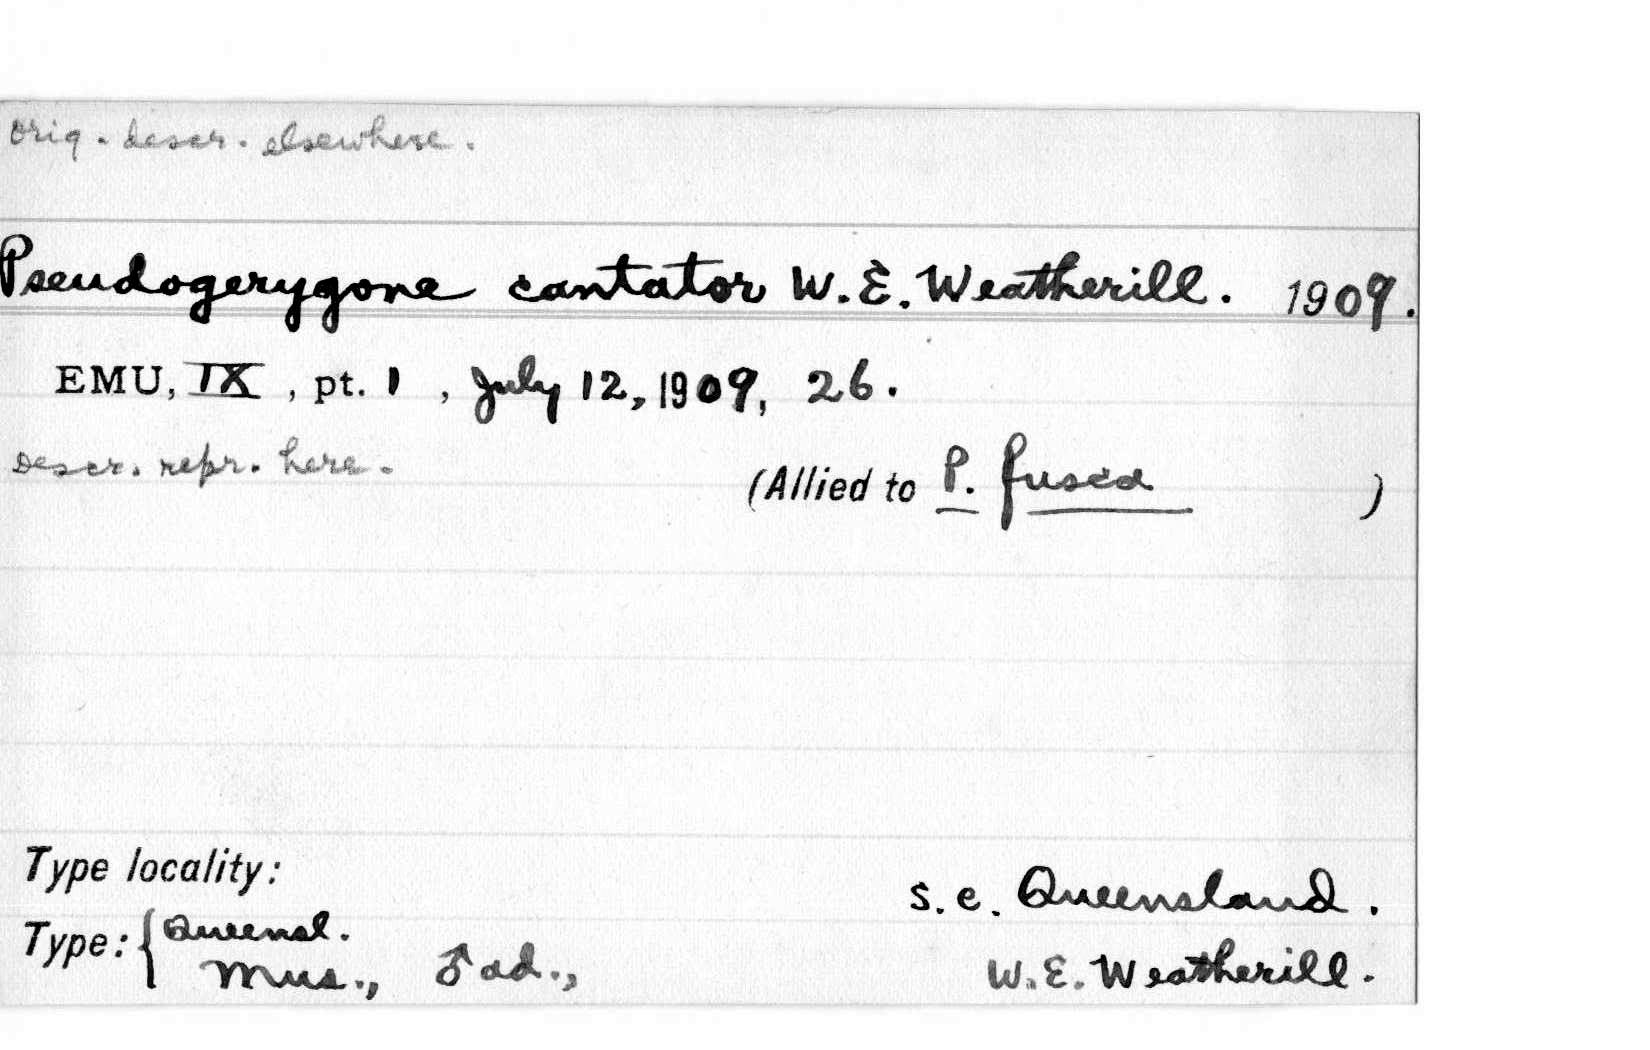 orig. descr. elsewhere.
Pseudogerygone cantator W.E. Weatherill. 1909.
EMU, IX, pt. 1, July 12, 1909, 26.
Descr. repr. here.
(Allied to P. fusca )
Type locality:
s.e. Queensland.
Type: { Queensl.
Mus., ♂ ad., W.E. Weatherill.